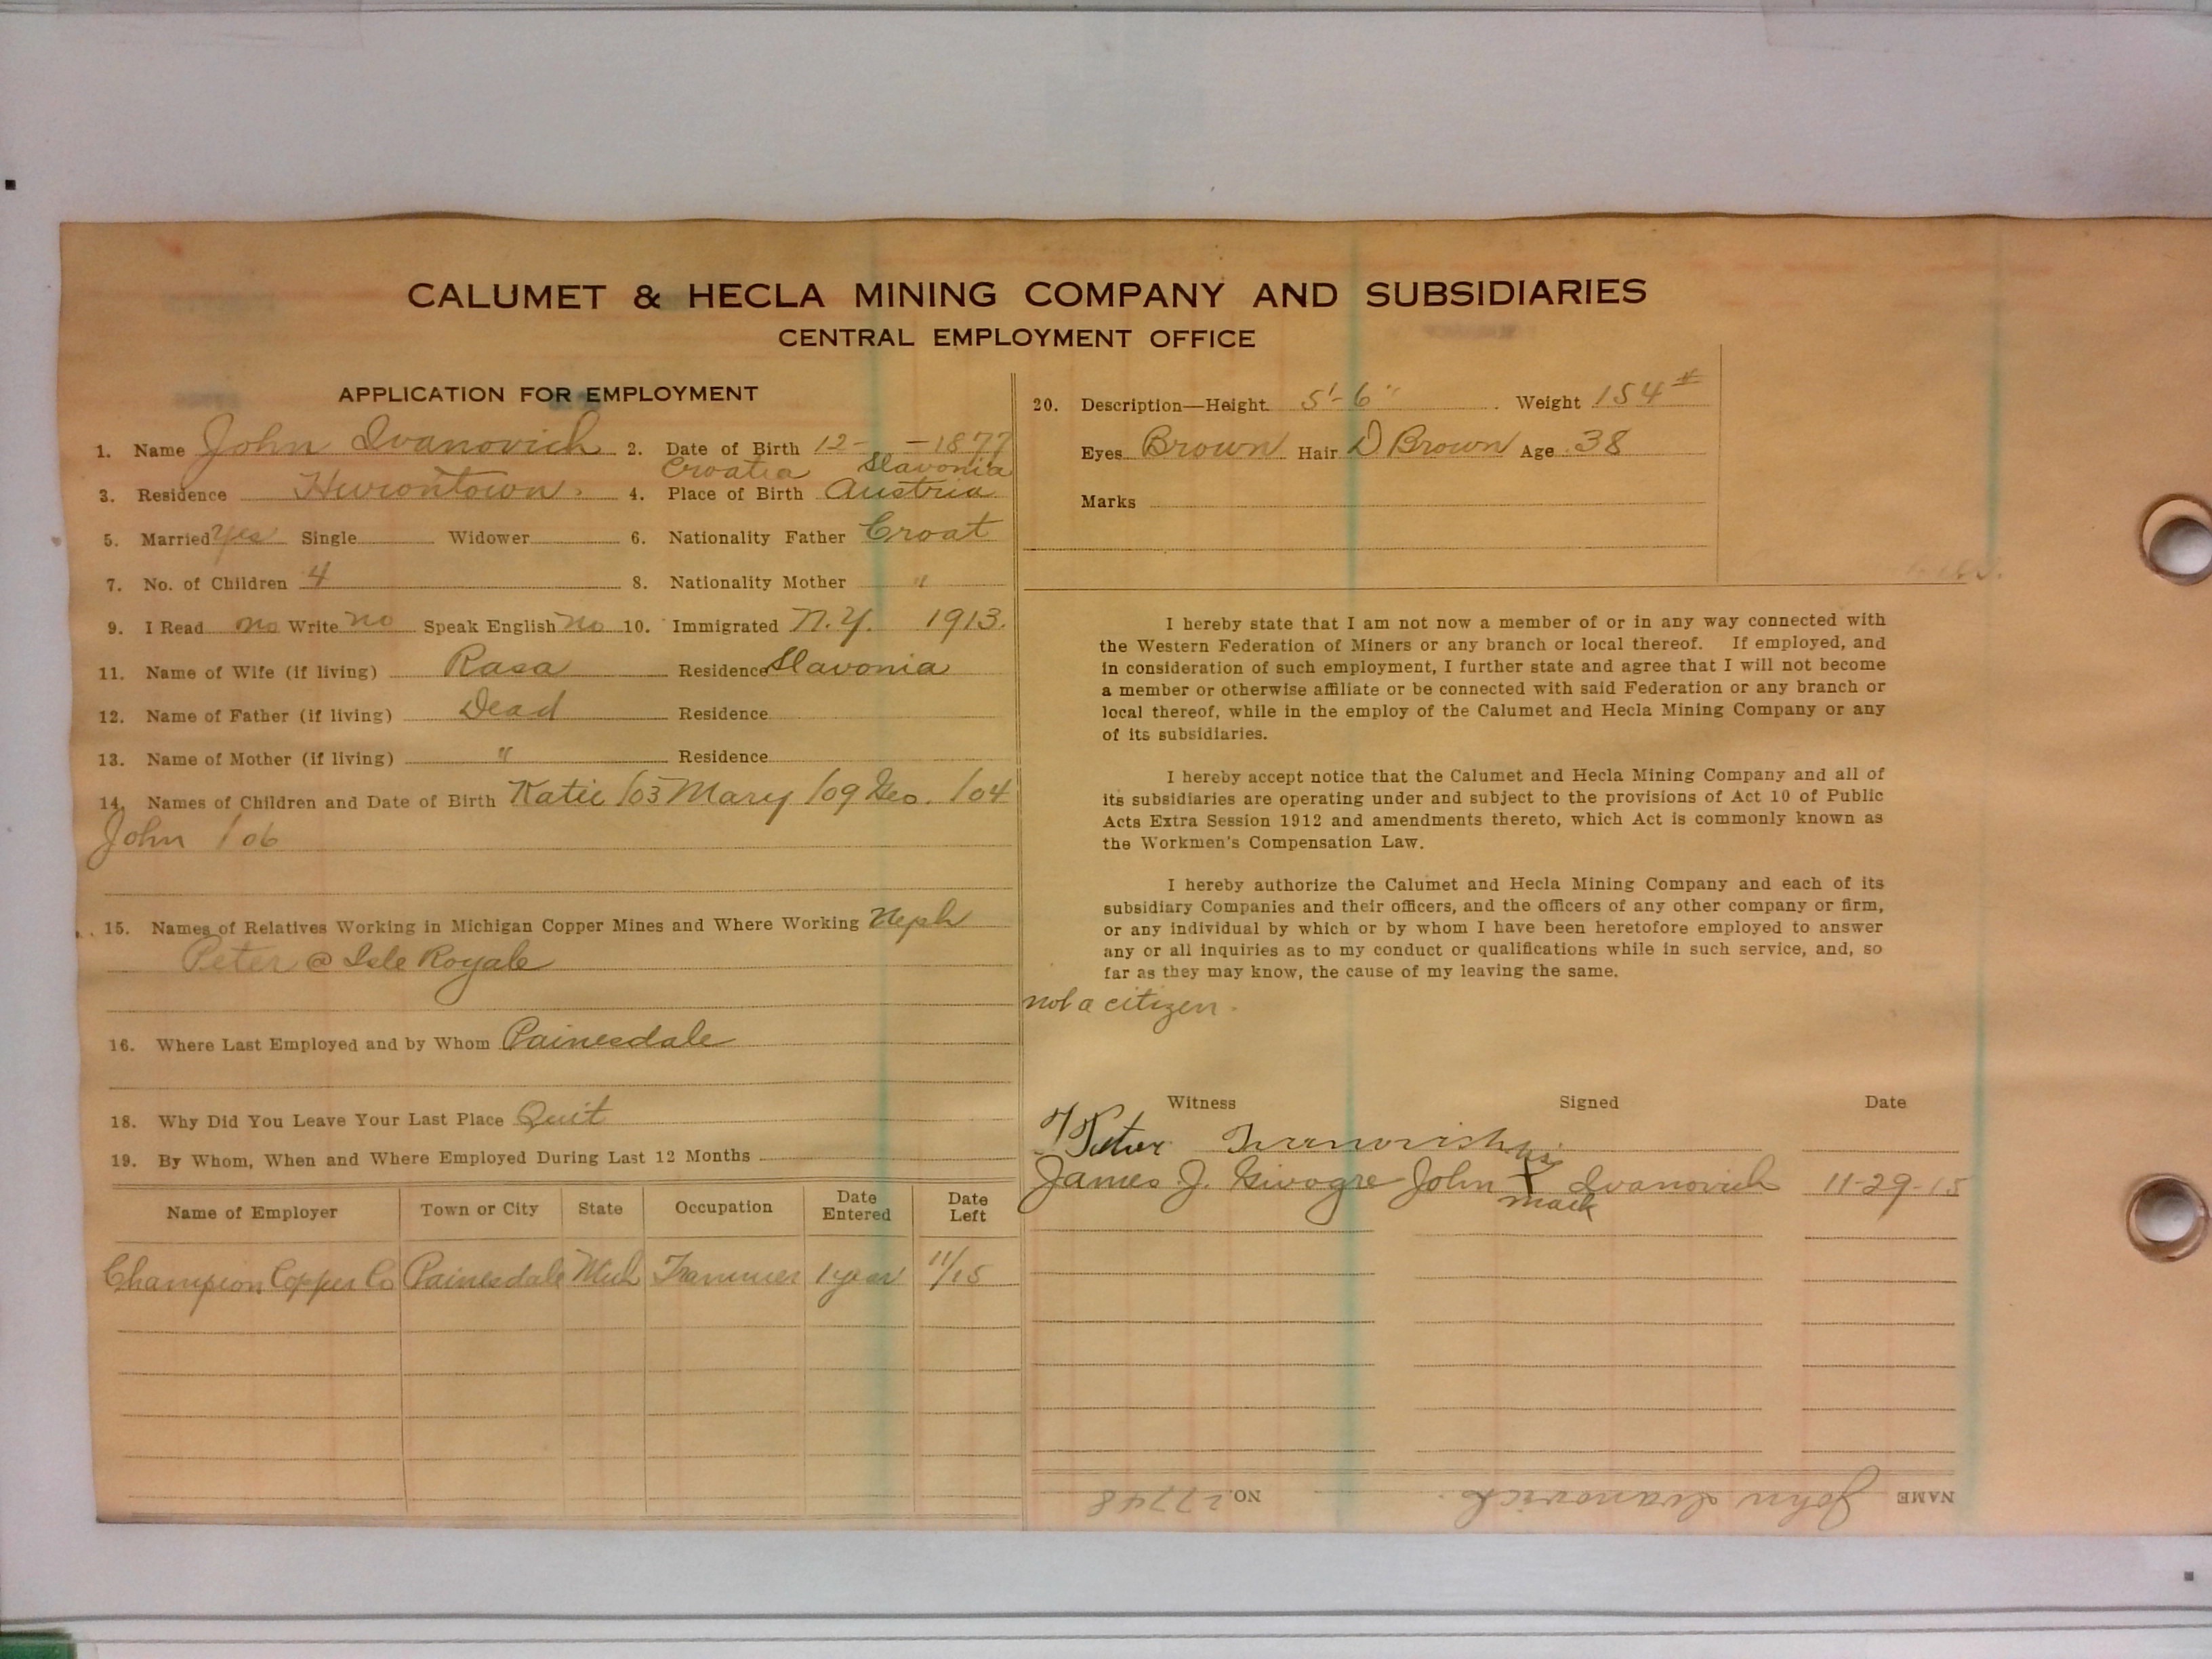 CALUMET & HECLA MINING COMPANY AND SUBSIDIARIES
CENTRAL EMPLOYMENT OFFICE
APPLICATION FOR EMPLOYMENT
1. Name John Ivanovich 2. Date of Birth 12- -1877
Croatia Slavonia
3. Residence Hurontown. 4. Place of Birth Austria
5. Married yes Single Widower 6. Nationality Father Croat
7. No. of Children 4 8. Nationality Mother "
9. I Read no Write no Speak English no 10. Immigrated N.Y. 1913.
11. Name of Wife (if living) Rasa Residence Slavonia
12. Name of Father (if living) Dead Residence
13. Name of Mother (if living) " Residence
14. Names of Children and Date of Birth Katie /03 Mary /09 Geo. /04
John /06
15. Names of Relatives Working in Michigan Copper Mines and Where Working Neph
Peter @ Isle Royale
16. Where Last Employed and by Whom Painesdale
18. Why Did You Leave Your Last Place Quit
19. By Whom, When and Where Employed During Last 12 Months
Name of Employer Town or City State Occupation Date Entered Date Left
Champion Copper Co Painesdale Mich Trammer 1 year 11/15
20. Description—Height 5'-6" Weight 154#
Eyes Brown Hair D Brown Age 38
Marks
I hereby state that I am not now a member of or in any way connected with
the Western Federation of Miners or any branch or local thereof. If employed, and
in consideration of such employment, I further state and agree that I will not become
a member or otherwise affiliate or be connected with said Federation or any branch or
local thereof, while in the employ of the Calumet and Hecla Mining Company or any
of its subsidiaries.
I hereby accept notice that the Calumet and Hecla Mining Company and all of
its subsidiaries are operating under and subject to the provisions of Act 10 of Public
Acts Extra Session 1912 and amendments thereto, which Act is commonly known as
the Workmen's Compensation Law.
I hereby authorize the Calumet and Hecla Mining Company and each of its
subsidiary Companies and their officers, and the officers of any other company or firm,
or any individual by which or by whom I have been heretofore employed to answer
any or all inquiries as to my conduct or qualifications while in such service, and, so
far as they may know, the cause of my leaving the same.
not a citizen.
Witness Signed Date
Peter his
James J. John X Ivanovich 11-29-15
mark
NAME John Ivanovich. NO. 27748